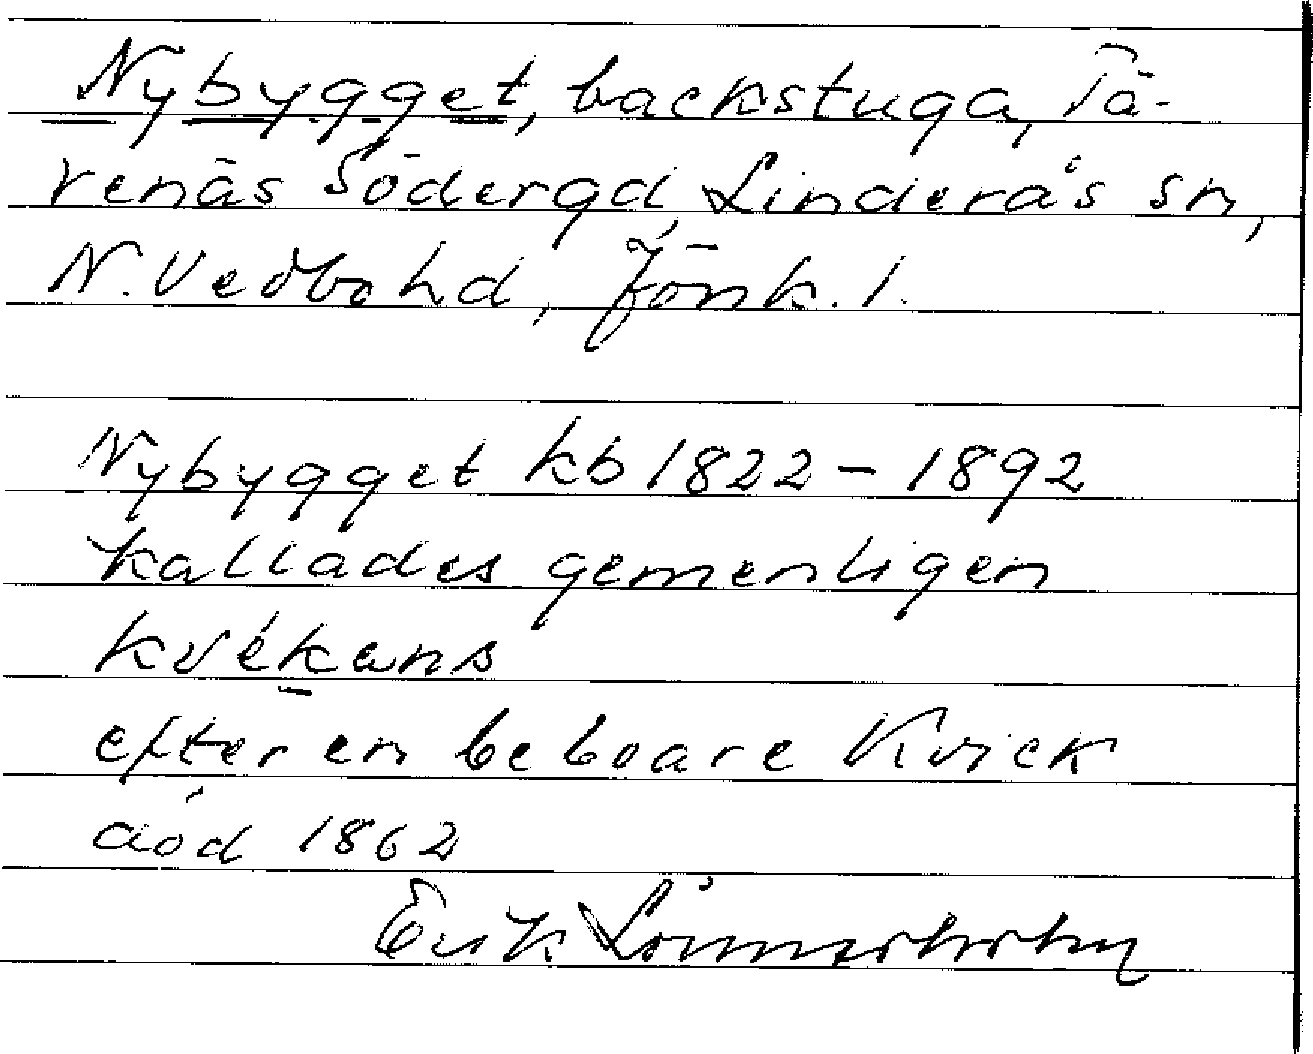 Nybygget, backstuga, Tä-
renäs Södergd, Linderås sn,
N. Vedbohd, Jönk. l.
Nybygget kb 1822 – 1892
kallades gemenligen
kvékans
efter en beboare Kvick
död 1862
Erik